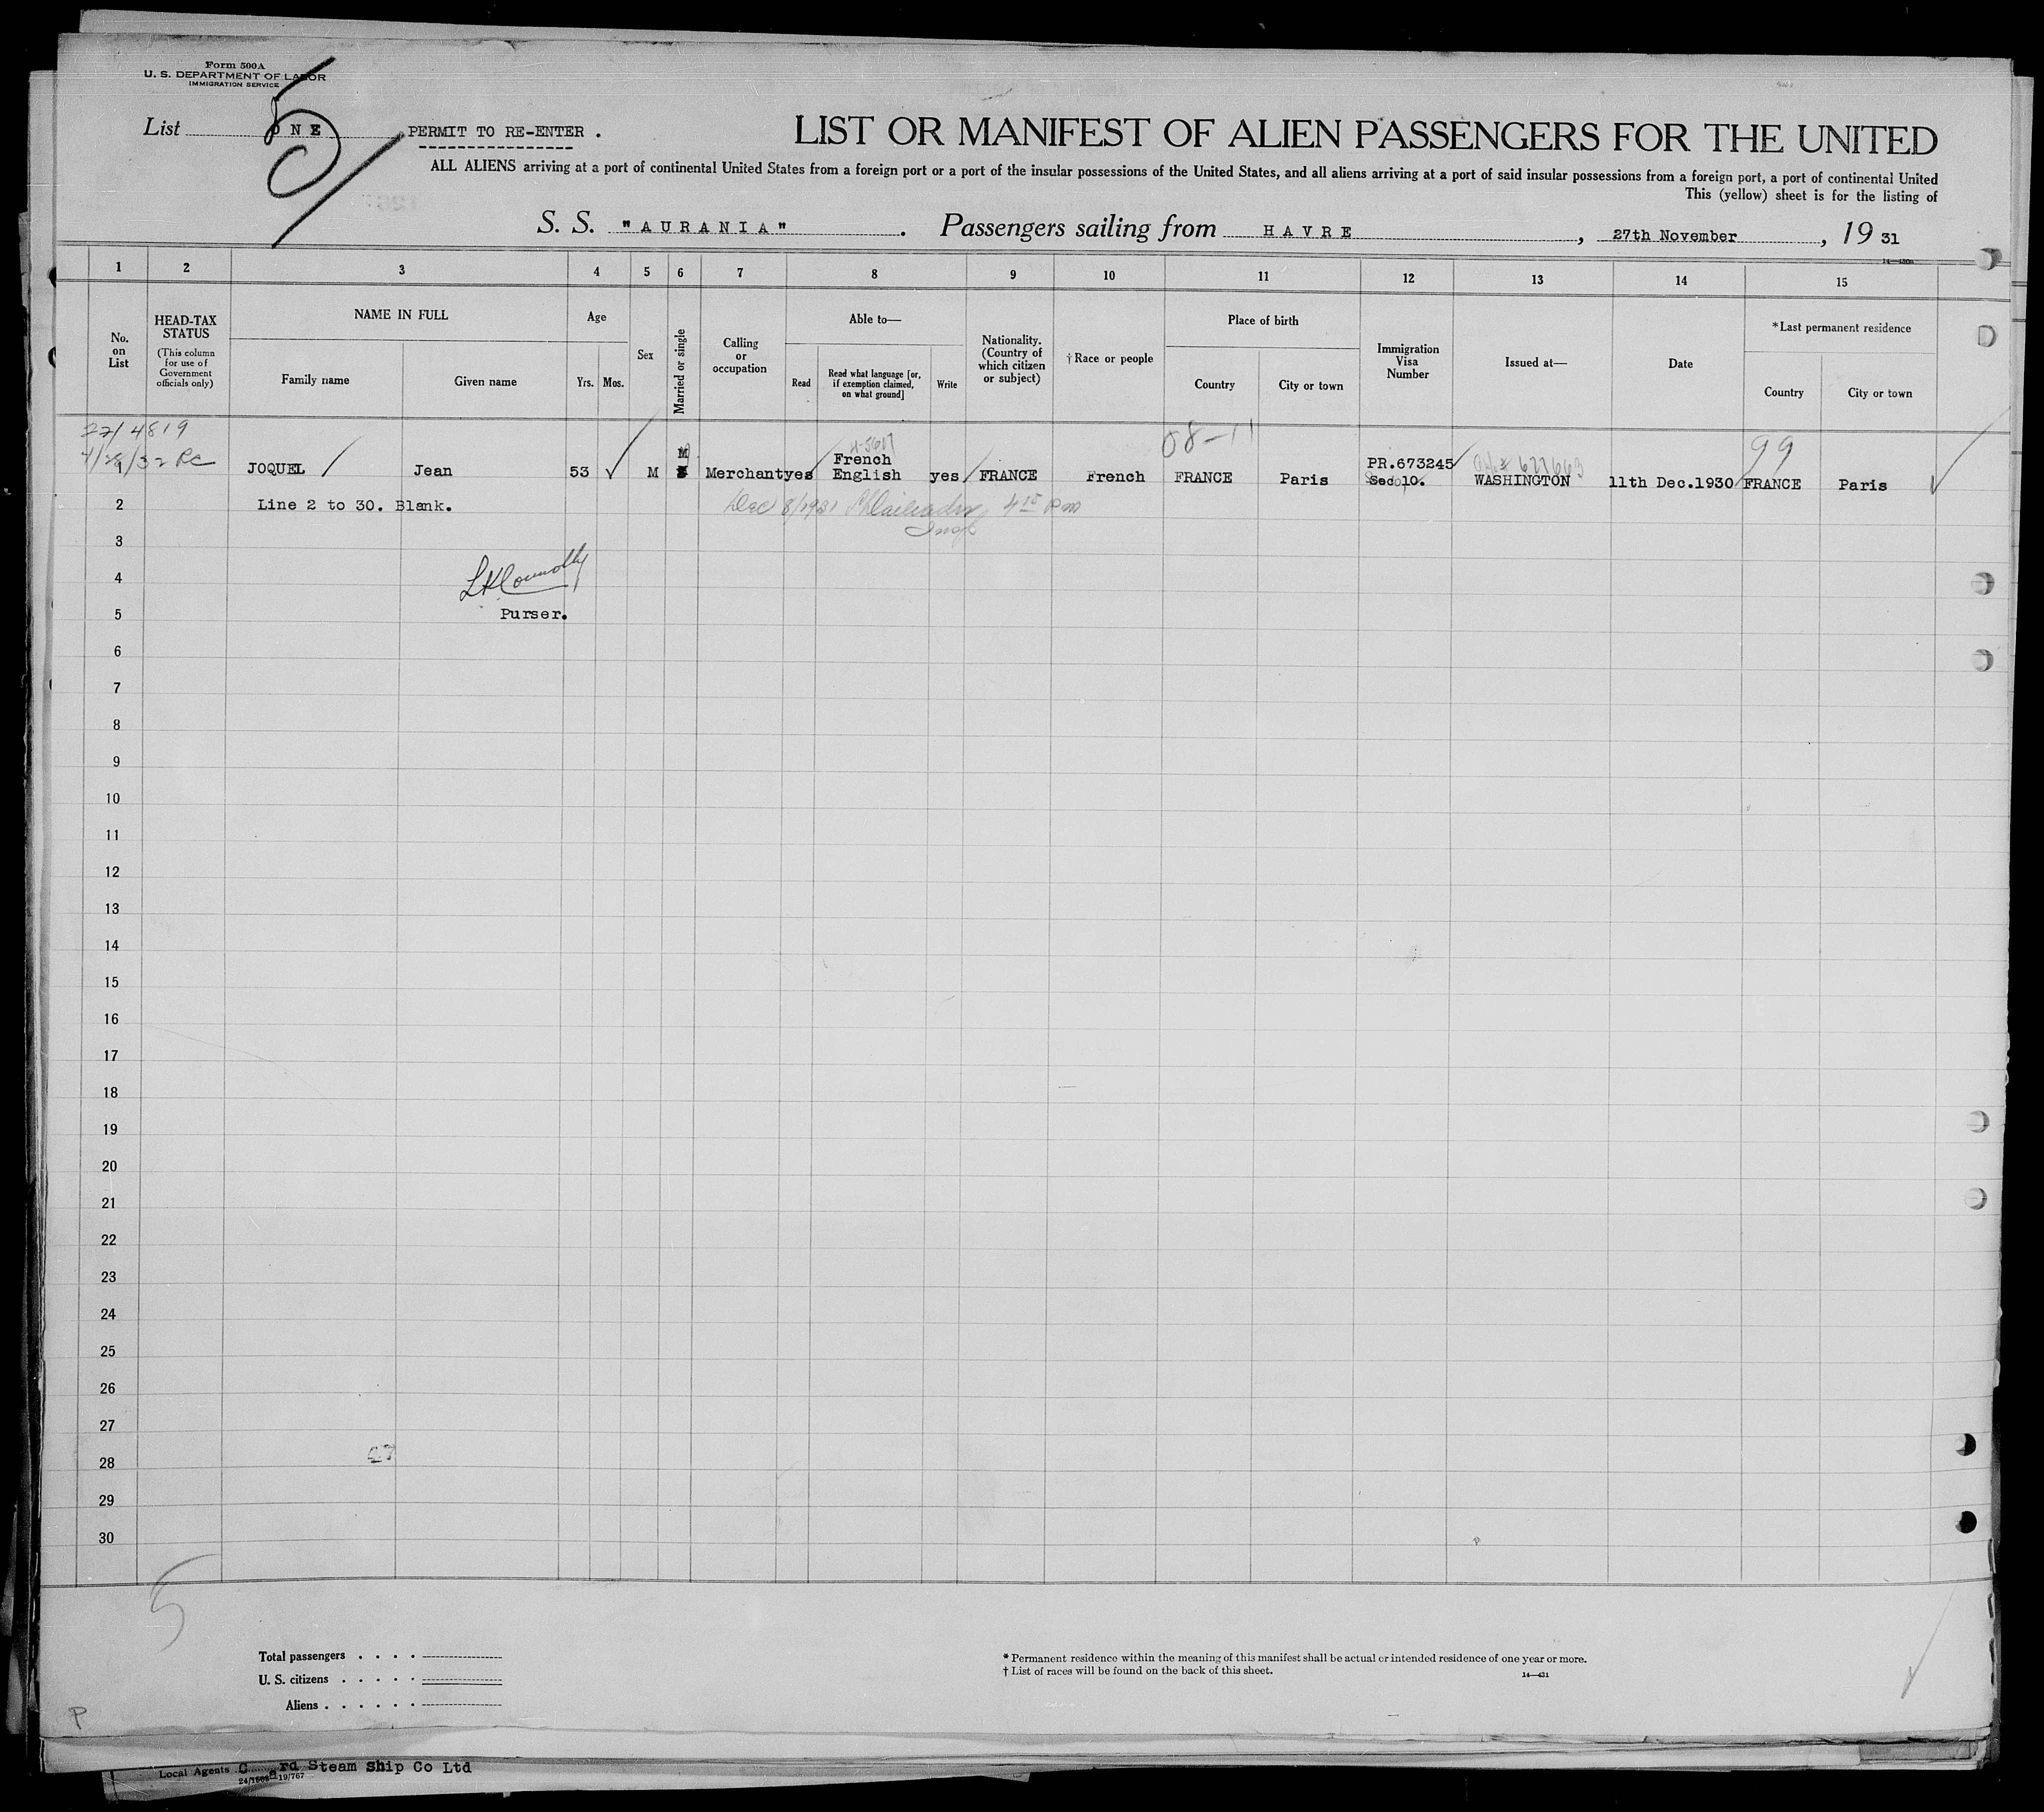 Form 500A
U. S. DEPARTMENT OF LABOR
IMMIGRATION SERVICE
List ONE PERMIT TO RE-ENTER .
5
LIST OR MANIFEST OF ALIEN PASSENGERS FOR THE UNITED
ALL ALIENS arriving at a port of continental United States from a foreign port or a port of the insular possessions of the United States, and all aliens arriving at a port of said insular possessions from a foreign port, a port of continental United
This (yellow) sheet is for the listing of
S. S. "AURANIA" . Passengers sailing from HAVRE , 27th November , 19 31
1 2 3 4 5 6 7 8 9 10 11 12 13 14 15
No. on List
HEAD-TAX STATUS
(This column for use of Government officials only)
NAME IN FULL
Family name
Given name
Age
Yrs.
Mos.
Sex
Married or single
Calling or occupation
Able to—
Read
Read what language [or, if exemption claimed, on what ground]
Write
Nationality. (Country of which citizen or subject)
† Race or people
Place of birth
Country
City or town
Immigration Visa Number
Issued at—
Date
*Last permanent residence
Country
City or town
22/4819
08-11
99
1 JOQUEL Jean 53 M M Merchant yes French English yes FRANCE French FRANCE Paris PR.673245 Sec 10. WASHINGTON 11th Dec.1930 FRANCE Paris
2 Line 2 to 30. Blank.
Dec 8/1931 4 15 PM
3
4
5 Purser.
6
7
8
9
10
11
12
13
14
15
16
17
18
19
20
21
22
23
24
25
26
27
28
29
30
5
Total passengers . . . .
U. S. citizens . . . . .
Aliens . . . . . .
* Permanent residence within the meaning of this manifest shall be actual or intended residence of one year or more.
† List of races will be found on the back of this sheet.
14—431
P
Local Agents Steam Ship Co Ltd